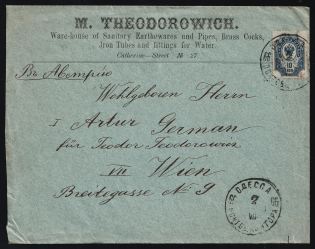 M. THEODOROWICH.
Ware-house of Sanitory Earthewares and Pipes, Brass Cocks,
Iron Tubes and fittings for Water.
Catherine—Street № 27
Въ Австрію
Wohlgeboren Herrn
I Artur German
für Teodor Teodorowicz
VII Wien
Breitegasse № 9
ОДЕССА
7